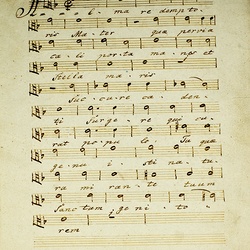 Al - ma redempto
ris Mater quae pervia
cæli porta manes et
Stella maris
Succurre caden-
ti Surgere qui cu-
rat populo Tu quae
genui sti natu
ra mi ran te tuum
Sanctam geni to
rem